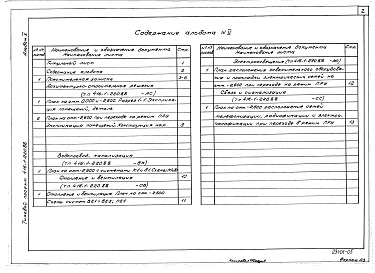 2
Альбом V
Содержание альбома № V
№№ листов
Наименование и обозначение документа
Наименование листа
Стр.
Титульный лист 1
Содержание альбома 2
Пояснительная записка 3-6
Архитектурно-строительные решения
(тп 416-1-220.88 -АС)
1 План на отм. 0.000 и -2.800. Разрез 1-1. Экспликация помещений, детали
2 План на отм. -2.800 при переходе на режим ПРУ
Экспликация помещений. Конструкция пола 8
Водопровод, канализация
(тп 416-1-220.88 -ВК)
1 План на отм. -2.800 с системами
Отопление и вентиляция 10
(тп 416-1-220.88 -ОВ)
1 Отопление и вентиляция. План на отм. -2.800
Схемы систем 11
№№ листов
Наименование и обозначение документа
Наименование листа
Стр.
Электроосвещение (тп 416-1-220.88 -ЭО)
1 План расположения осветительного оборудования и прокладки электрических сетей на
отм. -2.800 при переходе в режим ПРУ 12
Связь и сигнализация
(тп 416-1-220.88 -СС)
1 План на отм. -2.800 расположения сетей
телефонизации, радиофикации и электро-
часофикации при переходе в режим ПРУ 13
Типовой проект 416-1-220.88
23701-05
Копировал
Формат А3